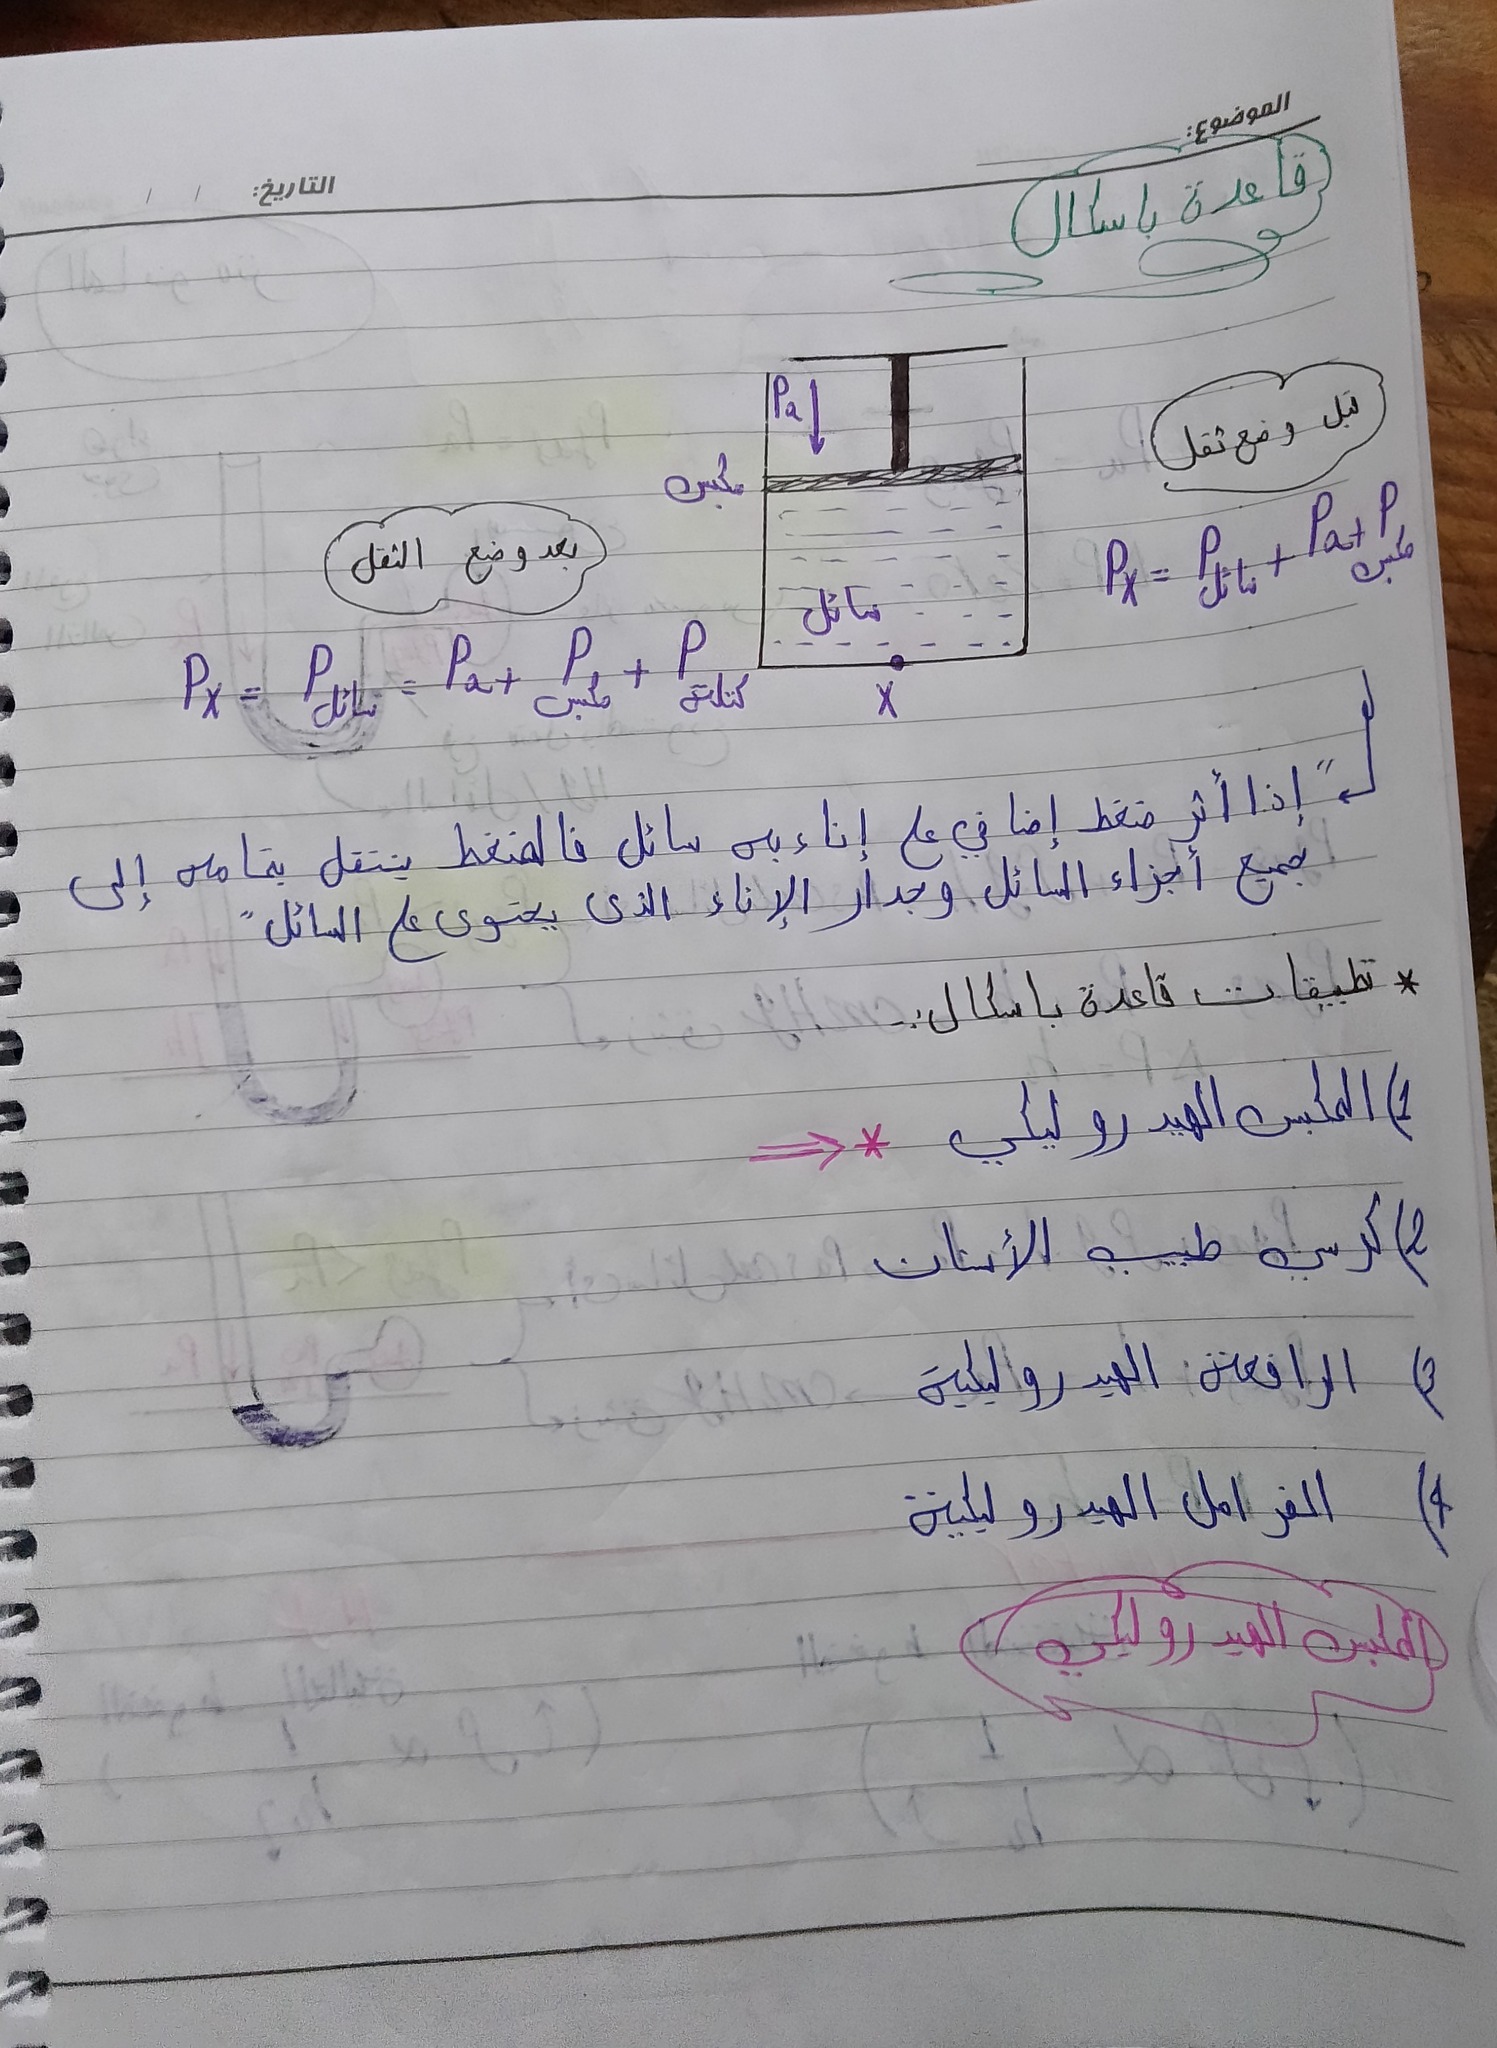 الموضوع:
التاريخ: / /
قاعدة باسكال
قبل وضع ثقل
Pa
مكبس
سائل
X
Px = P سائل + Pa + P مكبس
بعد وضع الثقل
Px = P سائل = Pa + P مكبس + P كتلة
"إذا أثر ضغط إضافي على إناء به سائل فالضغط ينتقل بتمامه إلى
جميع أجزاء السائل وجدار الإناء الذى يحتوى على السائل"
* تطبيقات قاعدة باسكال:-
1) المكبس الهيدروليكي *
2) كرسي طبيب الأسنان
3) الرافعة الهيدروليكية
4) الفرامل الهيدروليكية
المكبس الهيدروليكي